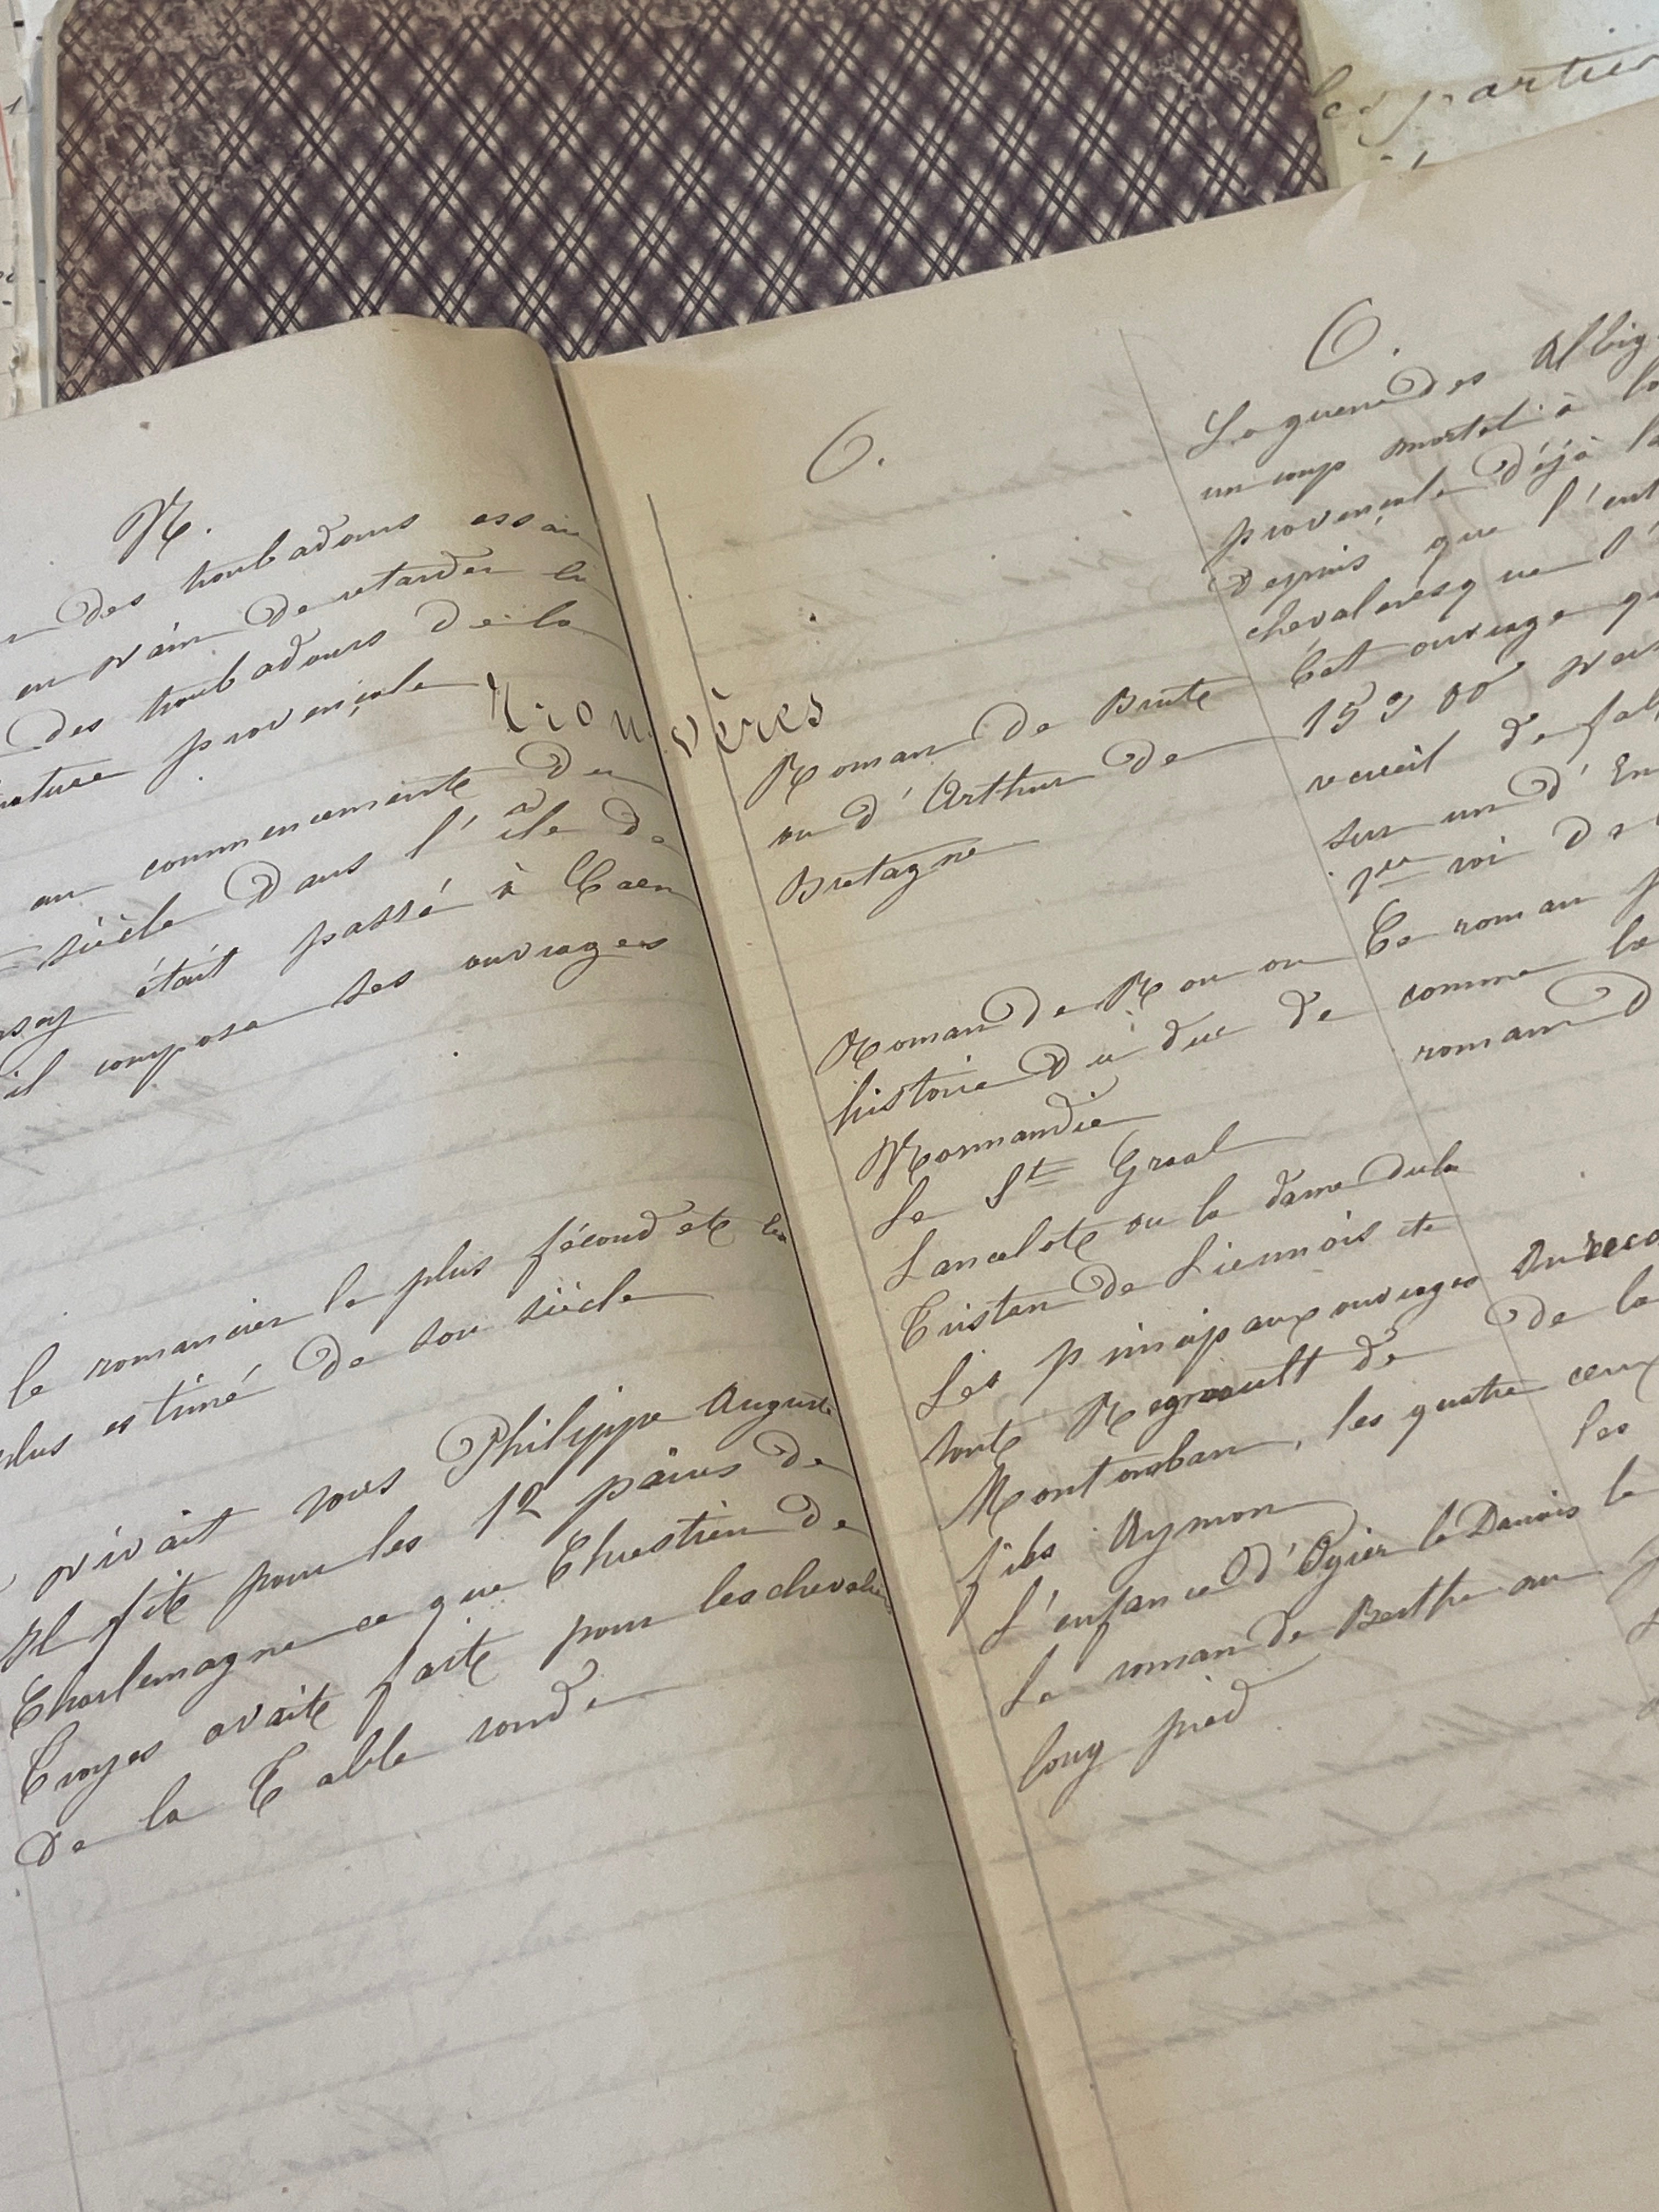 les parties
N.
des troubadours essai
en vain de retarder la
des troubadours de la
provençale
Trouvères
au commencement du
siècle dans l'île de
était passé à Caen
il composa ses ouvrages
le romancier le plus fécond et le
plus estimé de son siècle
vivait sous Philippe Auguste
Il fit pour les 12 pairs de
Charlemagne ce que Chrestien de
Troyes avait fait pour les chevali
de la Table ronde
O.
Roman de Brute
ou d'Arthur de
Bretagne
Roman de Rou ou
histoire du duc de
Normandie
Le St Graal
Lancelot ou la dame du la
Tristan de Liennois et
Les principaux ouvrages
sont Regnault de
Montauban, les quatre
fils Aymon
L'enfance d'Ogier le Danois
Le roman de Berthe au
long pied
O.
La guerre des Albig
un coup mortel à la
provençale déjà
depuis que l'ent
chevaleresque
Cet ouvrage
15300 vers
recueil de
sur un d'En
1er roi de
Ce roman
comme le
roman d
de la
ceux
les
le